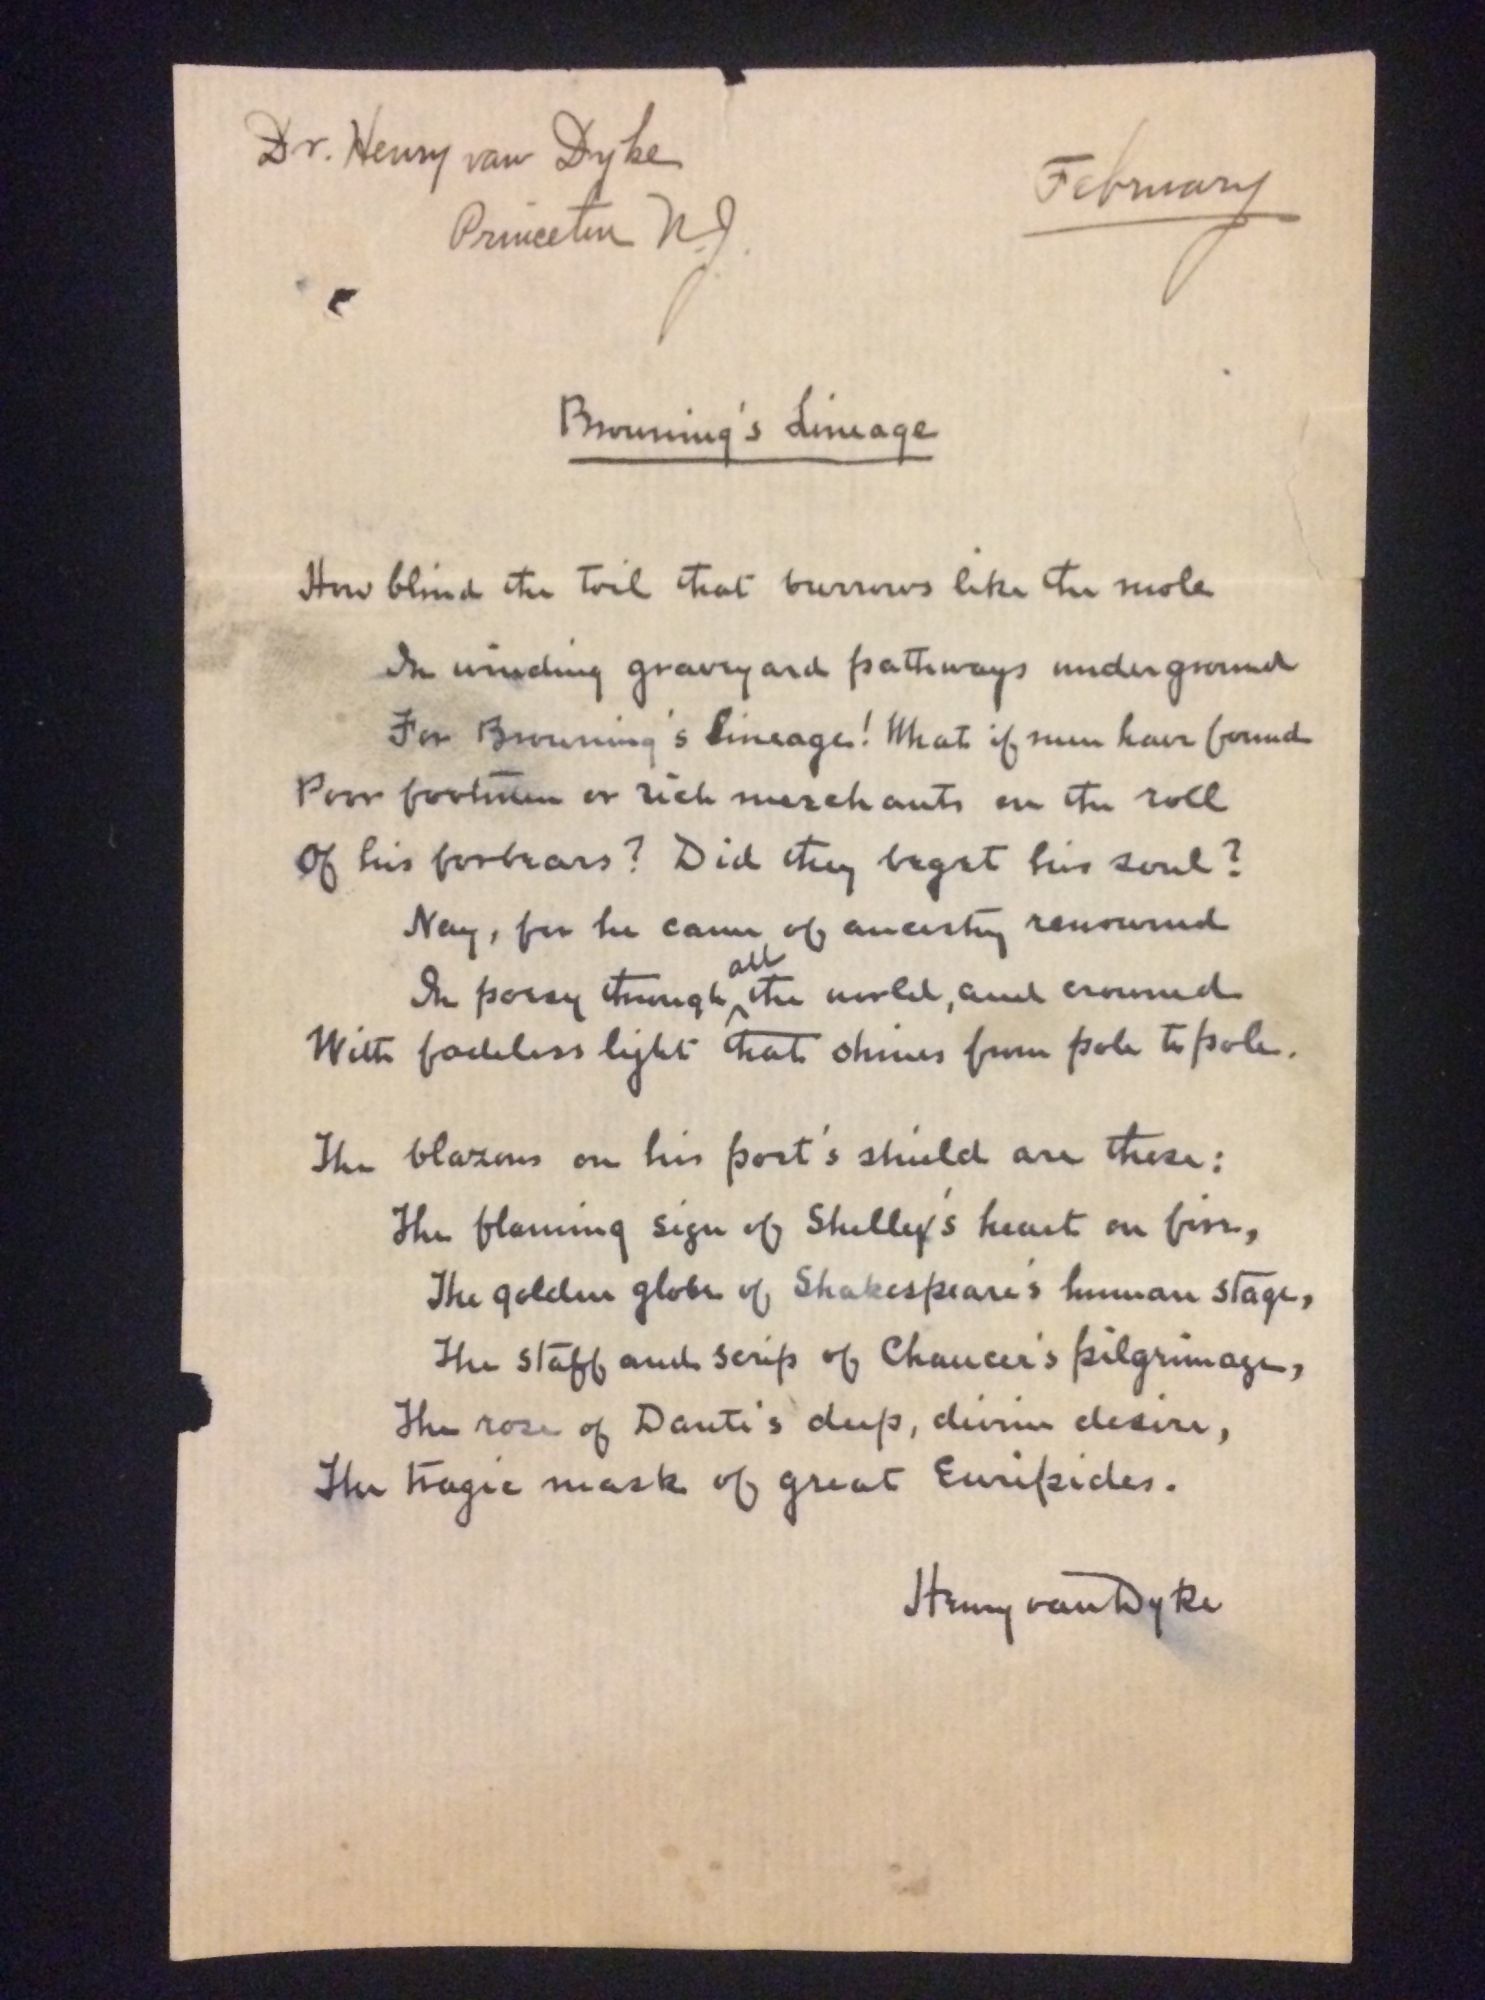 Dr. Henry van Dyke
Princeton N.J.
February
Browning's Lineage
How blind the toil that burrows like the mole
In winding graveyard pathways underground
For Browning's lineage! What if men have found
Poor footmen or rich merchants on the roll
Of his forbears? Did they beget his soul?
Nay, for he came of ancestry renowned
all
In poesy through ‸ the world, and crowned
With fadeless light that shines from pole to pole.
The blazons on his poet's shield are these:
The flaming sign of Shelley's heart on fire,
The golden globe of Shakespeare's human stage,
The staff and scrip of Chaucer's pilgrimage,
The rose of Dante's deep, divine desire,
The tragic mask of great Euripides.
Henry van Dyke